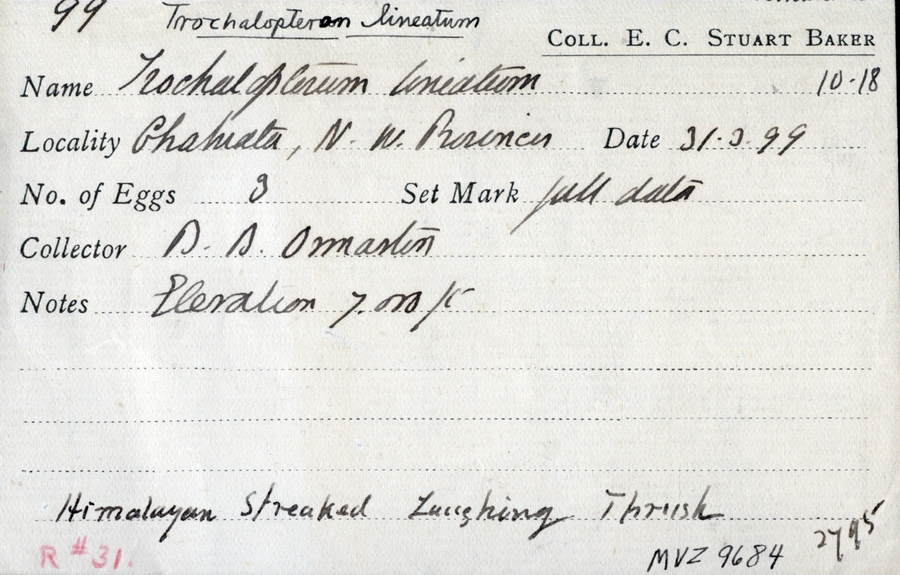 99 Trochalopteron lineatum
COLL. E. C. STUART BAKER
Name Trochalopterum lineatum 10-18
Locality Chakrata, N. W. Provinces Date 31.3.99
No. of Eggs 3 Set Mark full data
Collector B. B. Osmaston
Notes Elevation 7.000 ft
Himalayan Streaked Laughing Thrush
R #31. MVZ 9684 2795